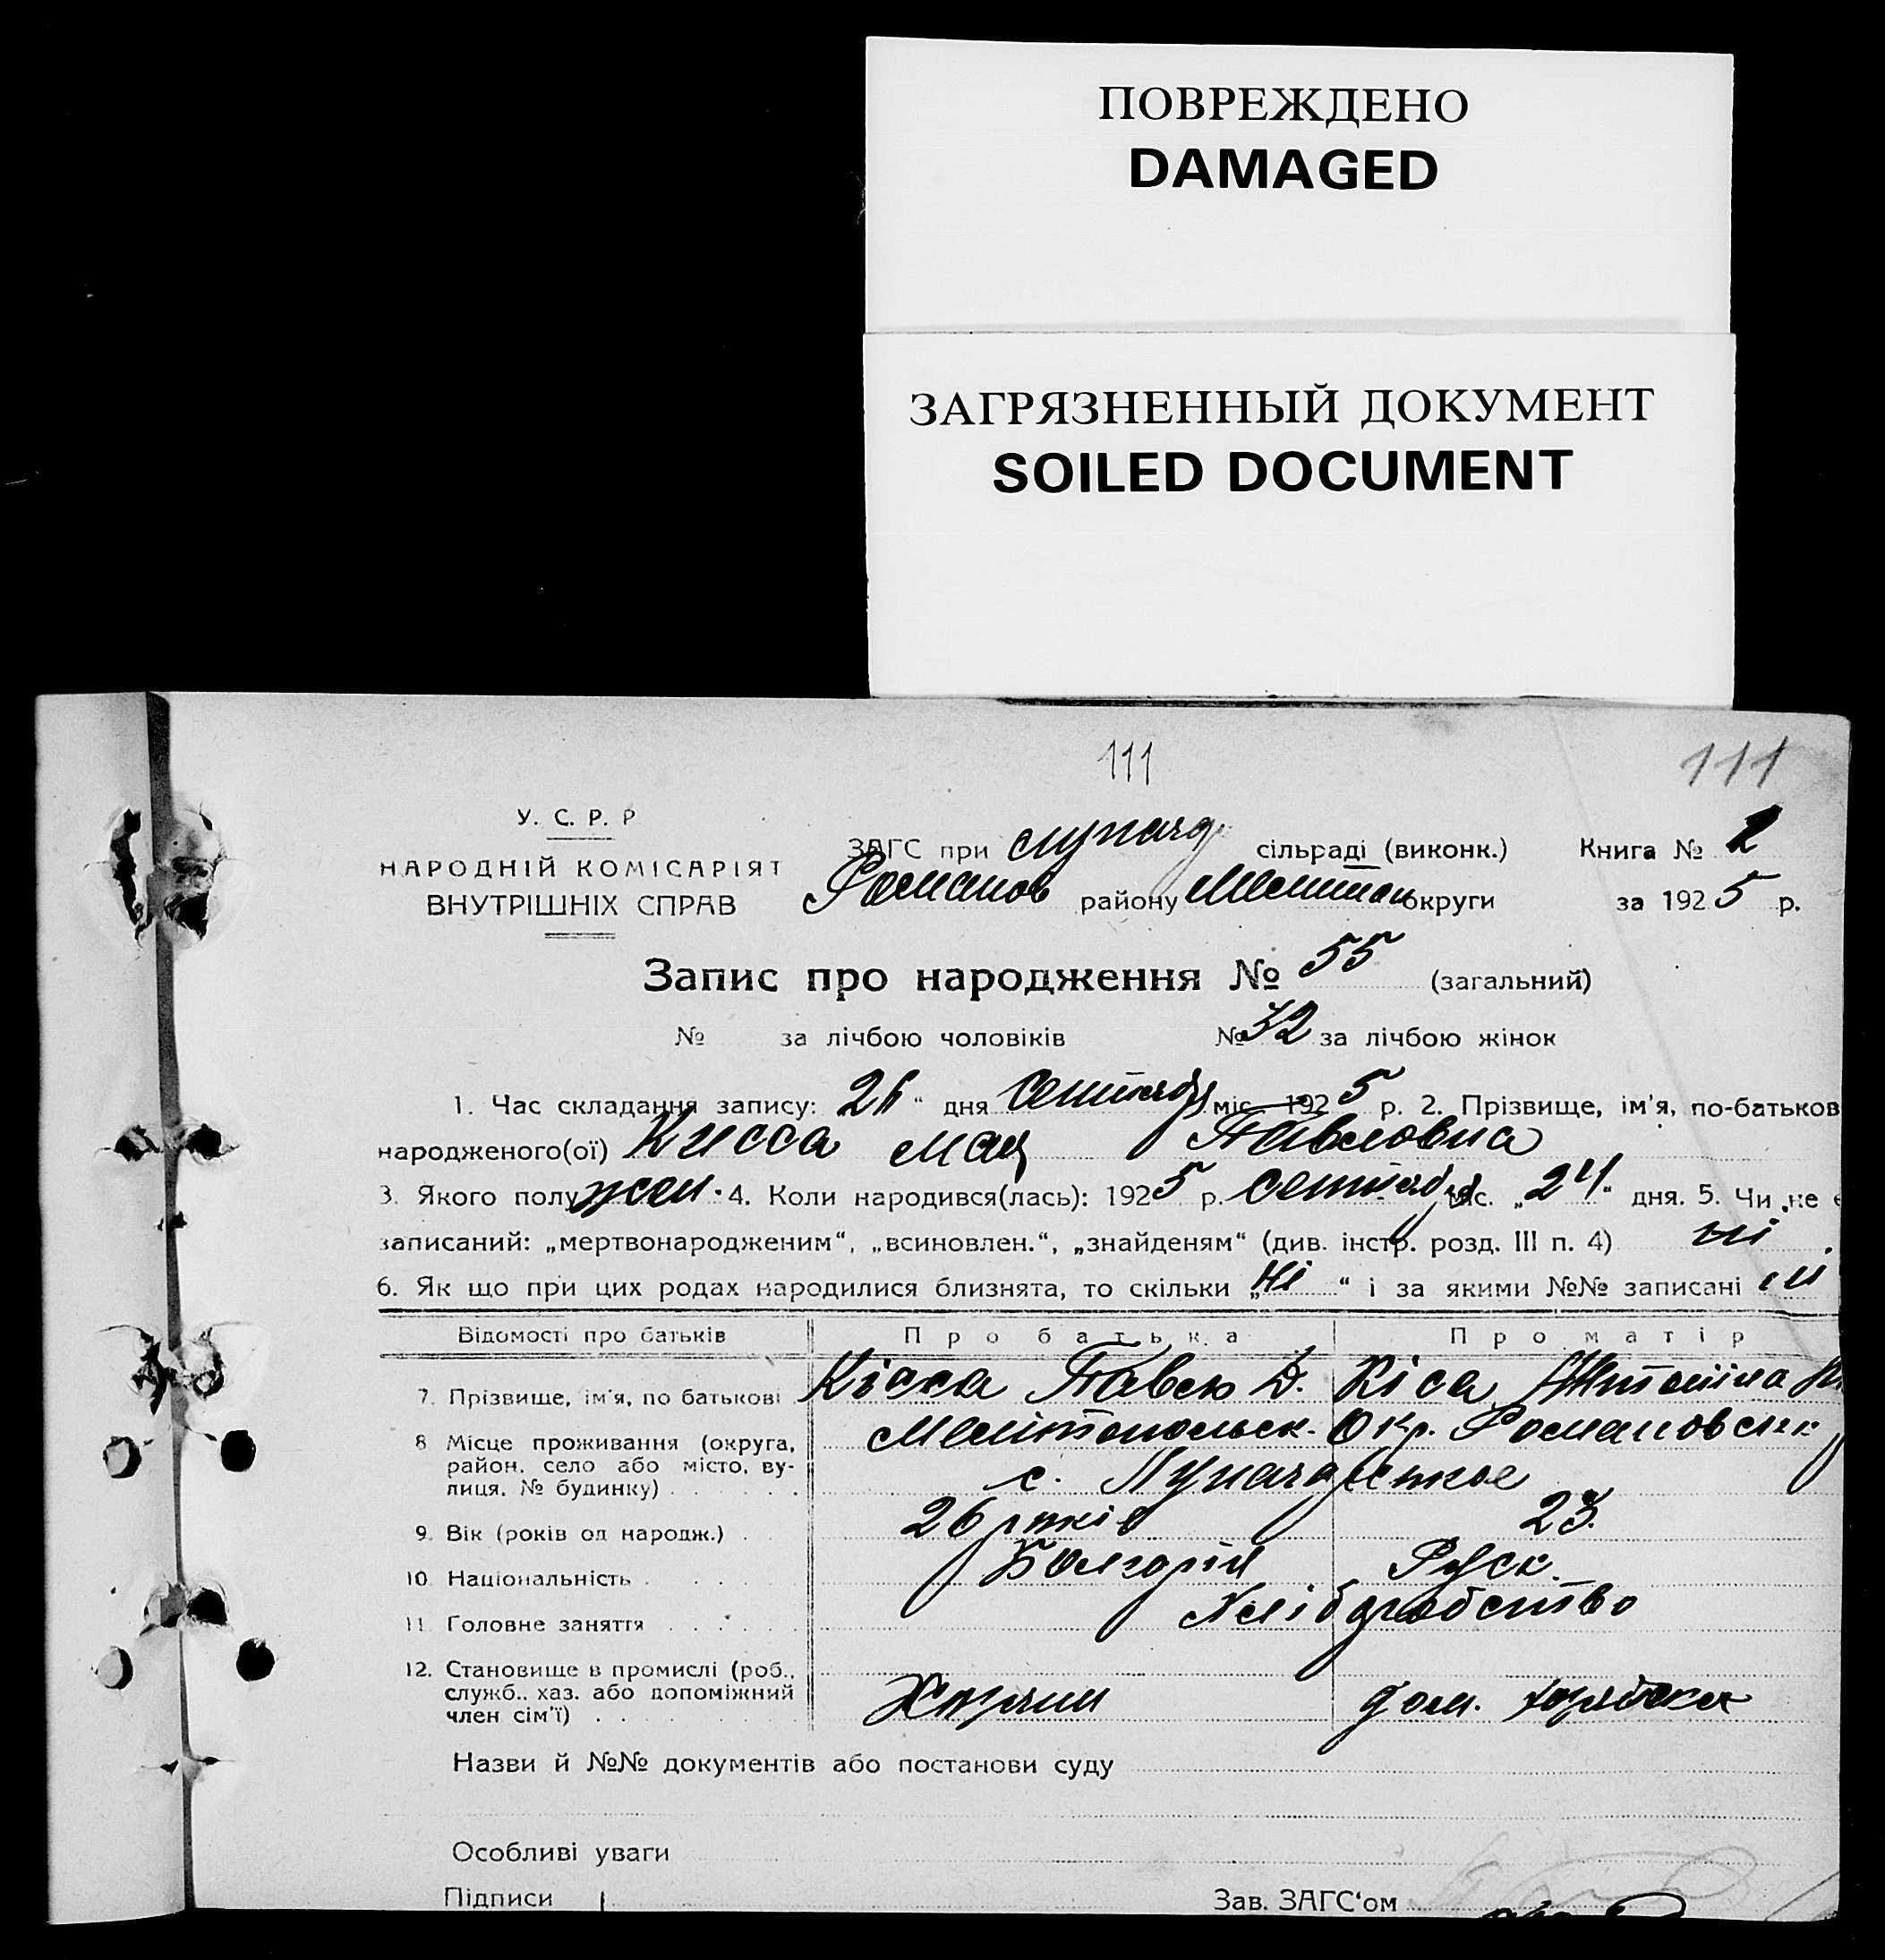 ПОВРЕЖДЕНО
DAMAGED
ЗАГРЯЗНЕННЫЙ ДОКУМЕНТ
SOILED DOCUMENT
111 111
У. С. Р. Р
НАРОДНІЙ КОМІСАРІЯТ
ВНУТРІШНІХ СПРАВ
ЗАГС при сільраді (виконк.) Книга № 2
Романов району округи за 1925 р.
Запис про народження № 55 (загальний)
№ за лічбою чоловіків № 32 за лічбою жінок
1. Час складання запису: дня міс. 1925 р. 2. Прізвище, ім'я, по-батьков
народженого(ої) Кисса Павловна
3. Якого полу жен. 4. Коли народився(лась): 1925 р. міс. „24“ дня. 5. Чи не є
записаний: „мертвонародженим“, „всиновлен.“, „знайденям“ (див. інстр. розд. III п. 4) ні.
6. Як що при цих родах народилися близнята, то скільки „Ні“ і за якими №№ записані
Відомості про батьків Про батька Про матір
7. Прізвище, ім'я, по батькові Кісса Д. Кіса
8 Місце проживання (округа, район, село або місто, ву-
лиця, № будинку) Окр.
с.
9. Вік (років од народж.) 26 років 23.
10 Національність Руск.
11 Головне заняття Хліборобство
12. Становище в промислі (роб.,
служб., хаз. або допоміжний
член сім'ї) дом.
Назви й №№ документів або постанови суду
Особливі уваги
Підписи Зав. ЗАГС'ом